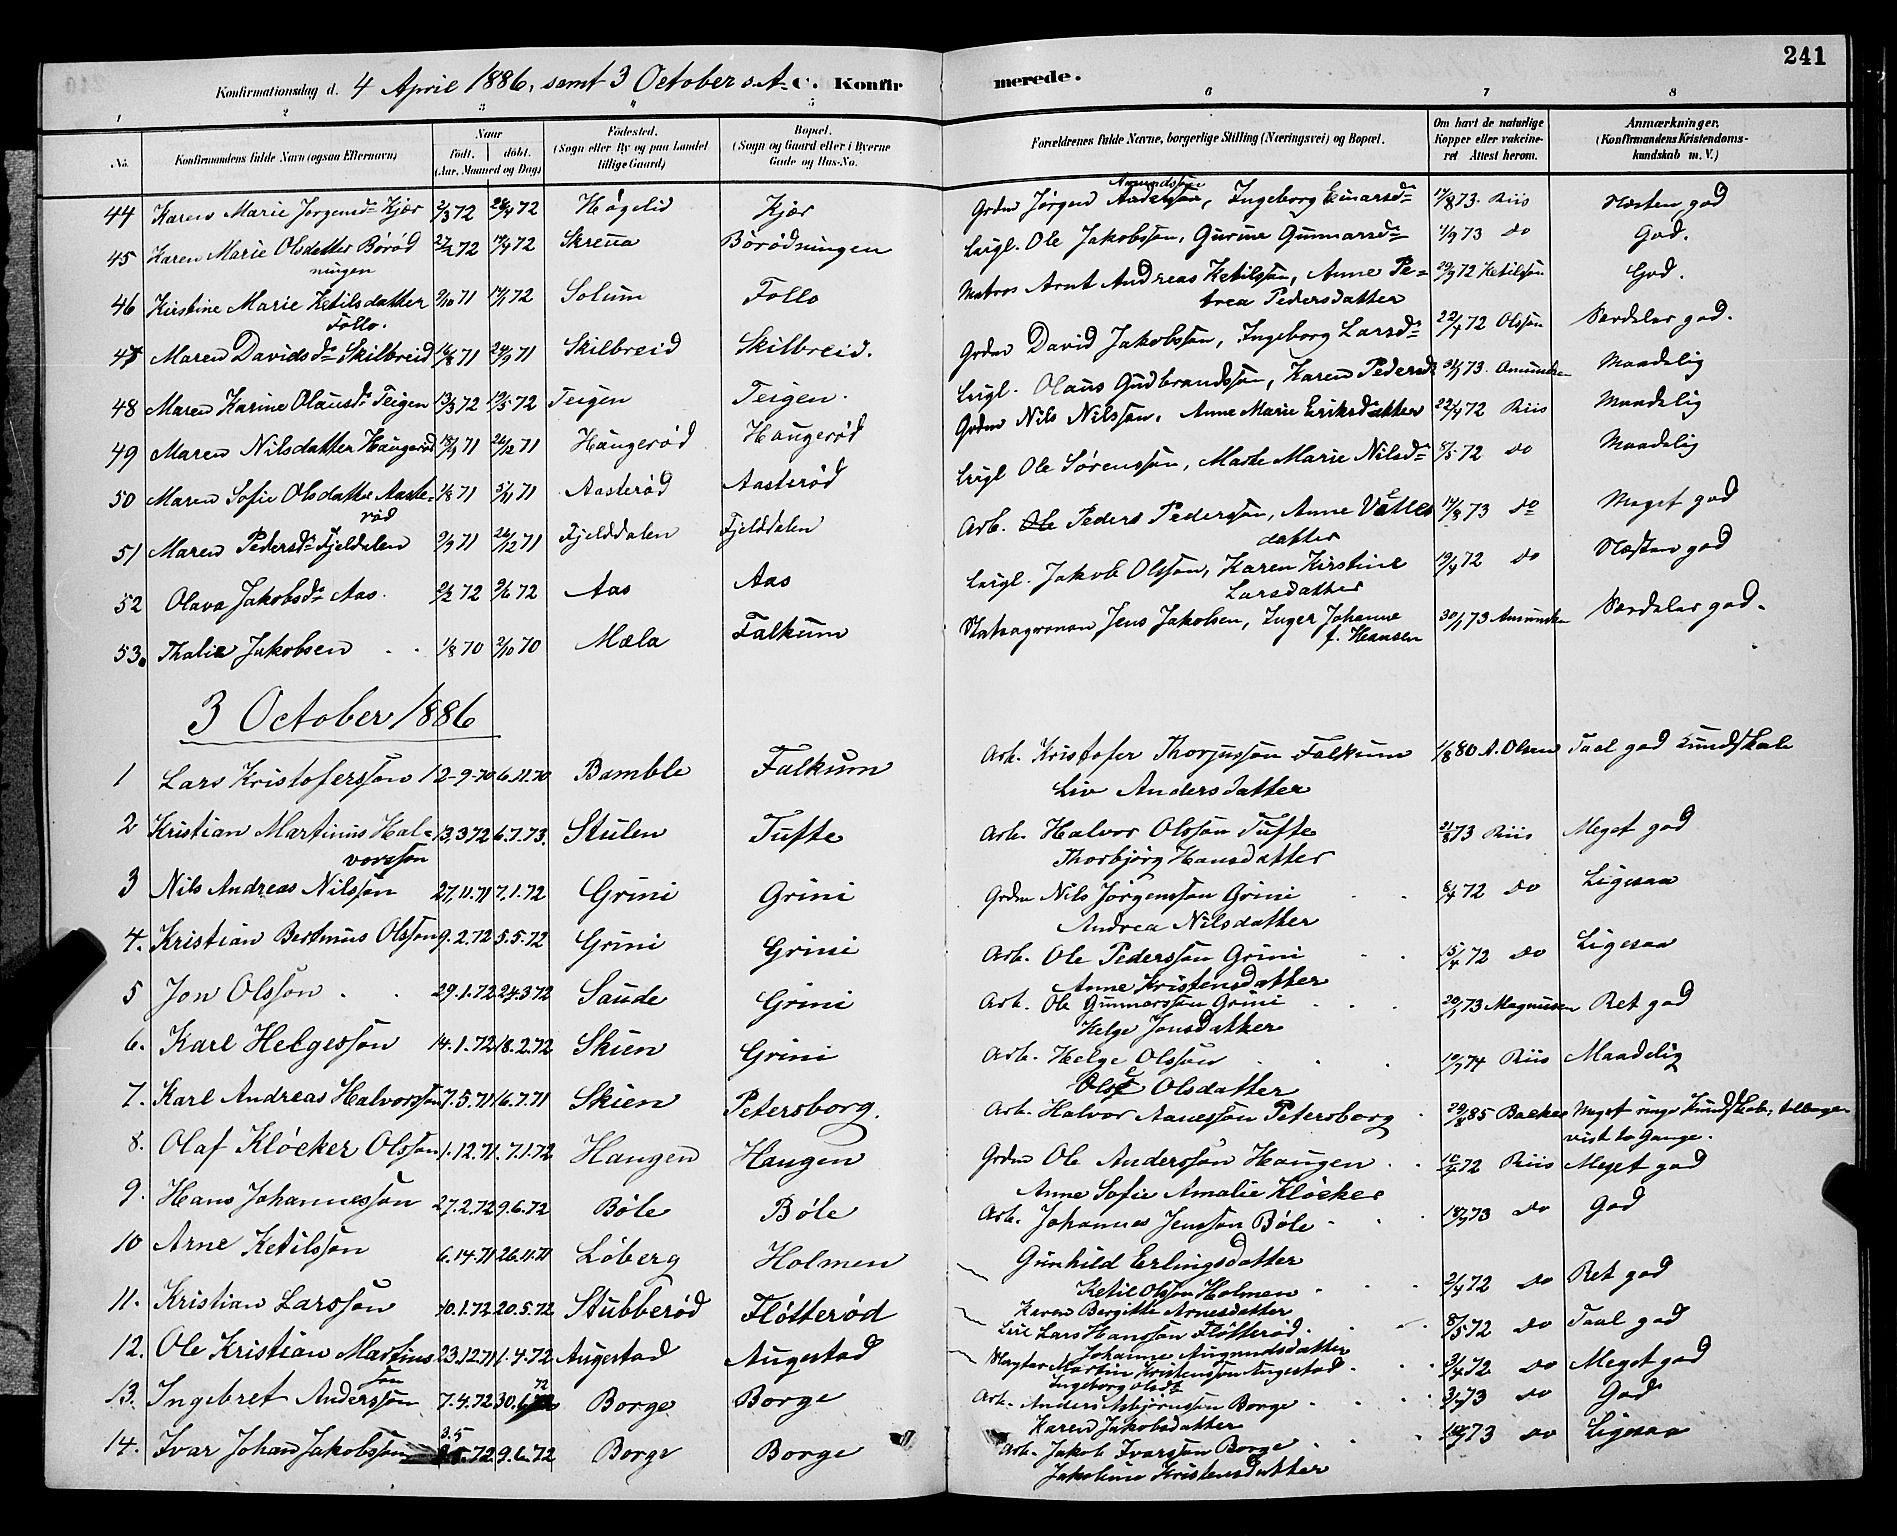 241
Konfirmationsdag d. 4 April 1886, samt 3 October s.A. C. Konfirmerede.
1 2 3 4 5 6 7 8
No. Konfirmandens fulde Navn (ogsaa Efternavn) Naar födt. döbt. (Aar, Maaned og Dag) Födested. (Sogn eller By og paa Landet tillige Gaard) Bopæl. (Sogn og Gaard eller i Byerne Gade og Hus-No. Forældrenes fulde Navne, borgerlige Stilling (Næringsvei) og Bopæl. Om havt de naturlige Kopper eller vakcineret Attest herom. Anmærkninger. (Konfirmandens Kristendomskundskab m. V.)
44 Karen Marie Jørgensd. Kjær 2/3 72 28/4 72 Høgelid Kjær Grdm Jørgen Amundssøn, Ingeborg Einarsd. 17/8 73 Riis Næsten god
45 Karen Marie Olsdatter Børødningen 27/2 72 14/4 72 Skreua Børødningen Leigl. Ole Jakobssøn, Gurine Gunnarsd. 1/9 73 do God.
46 Kirstine Marie Ketilsdatter Follo. 9/10 71 14/1 72 Solum Follo Matros Arnt Andreas Ketilssøn, Anne Petrea Pedersdatter 29/9 72 Ketilsøn God.
47 Maren Davidsd. Skilbreid 16/8 71 24/9 71 Skilbreid Skilbreid. Grdm David Jakobssøn, Ingeborg Larsd. 22/4 72 Olssøn Særdeles god.
48 Maren Karine Olausd. Teigen 13/3 72 19/5 72 Teigen Teigen. Leigl. Olaus Gudbrandssøn, Karen Pedersd. 73. Amundsen Maadelig
49 Maren Nilsdatter Haugerød 18/9 71 26/12 71 Haugerød Haugerød Grdm Nils Nilssøn, Anne Marie Eriksdatter 22/4 72 Riis Maadelig
50 Maren Sofie Olsdatter Aasterød 1/8 71 5/11 71 Aasterød Aasterød Leigl Ole Sørenssøn, Marte Marie Nilsd. 8/5 72 do Maadelig
51 Maren Pedersd. Fjeldalen 9/9 71 26/12 71 Fjelddalen Fjelddalen Arb. Peders Pederssøn, Anne Vetlesdatter 17/8 73 do Meget god
52 Olava Jakobsd. Aas. 2/2 72 9/6 72 Aas Aas Leigl. Jakob Olssøn, Karen Kirstine Larsdatter 19/4 72 do Næsten god
53. Thalia Jakobsen 1/8 70 2/10 70 Mæla Falkum Statsagronom Jens Jakobsen, Inger Johanne f. Hansen 30/1 73 Amundsen Særdeles god.
3 October 1886
1 Lars Kristoferssøn 12-9-70 6.11.70 Bamble Falkum Arb. Kristofer Thorjussøn Falkum 1/8 80 A. Olsen Taal god Kundskab
Liv Andersdatter
2 Kristian Martinus Halvorssøn 13.3 72 6.7.73. Stulen Tufte Arb. Halvor Olssøn Tufte 21/8 73 Riis Meget god
Thorbjørg Hansdatter
3 Nils Andreas Nilssøn 27.11.71 7.1.72 Grini Grini Grdm Nils Jørgenssøn Grini 6/4 72 do Ligesaa
Andrea Nilsdatter
4. Kristian Bertinus Olssøn 9.2.72 5.5.72 Grini Grini Arb. Ole Pederssøn Grini 15/4 72 do Ligesaa
Anne Kristensdatter
5 Jon Olssøn 29.1.72 24.3 72 Saude Grini Arb. Ole Gunnarssøn Grini 73 Magnusen Ret god
Helge Jonsdatter
6. Karl Helgessøn 14.1.72 18.2.72 Skien Grini Arb. Helge Olssøn 74 Riis Maadelig
Olsdatter
7. Karl Andreas Halvorssøn 7.5.71 16.7.71 Skien Petersborg. Arb. Halvor Aanessøn Petersborg 29/8 85 Backer Meget ringe Kundskab, tilbagevist to Gange.
8. Olaf Kløcker Olssøn 1.12.71. 7.1.72 Haugen Haugen Grdm Ole Anderssøn Haugen 72 Riis Meget god
Anne Sofie Amalie Kløcker
9. Hans Johannessøn 27.2.72 9.6.72 Bøle Bøle Arb. Johannes Jenssøn Bøle 73 do God
Gunhild Erlingsdatter
10 Arne Ketilssøn 6.14.71 26.11.71 Løberg Holmen Ketil Olssøn Holmen 2/4 72 do Ret god
Karen Birgitte Arnesdatter
11. Kristian Larssøn 10.1.72 20.5.72 Stubberød Fløtterød Lars Hanssøn Fløtterød 8/5 72 do Taal god
Johanne Amundsdatter
12. Ole Kristian Martinssøn 23.12.71 1.4.72 Augestad Augestad Slagter Martin Kristenssøn Augestad 2/4 72 do Meget god
Ingeborg Olsd.
13. Ingebret Anderssøn 7.4.72 30.6.72 Borge Borge Arb. Anders Asbjørnssøn Borge 73 do God
Karen Jakobsdatter
14. Ivar Johan Jakobssøn 3.5 72 9.6.72 Borge Borge Arb. Jakob Ivarssøn Borge 73 do Ligesaa
Jakobine Kristensdatter